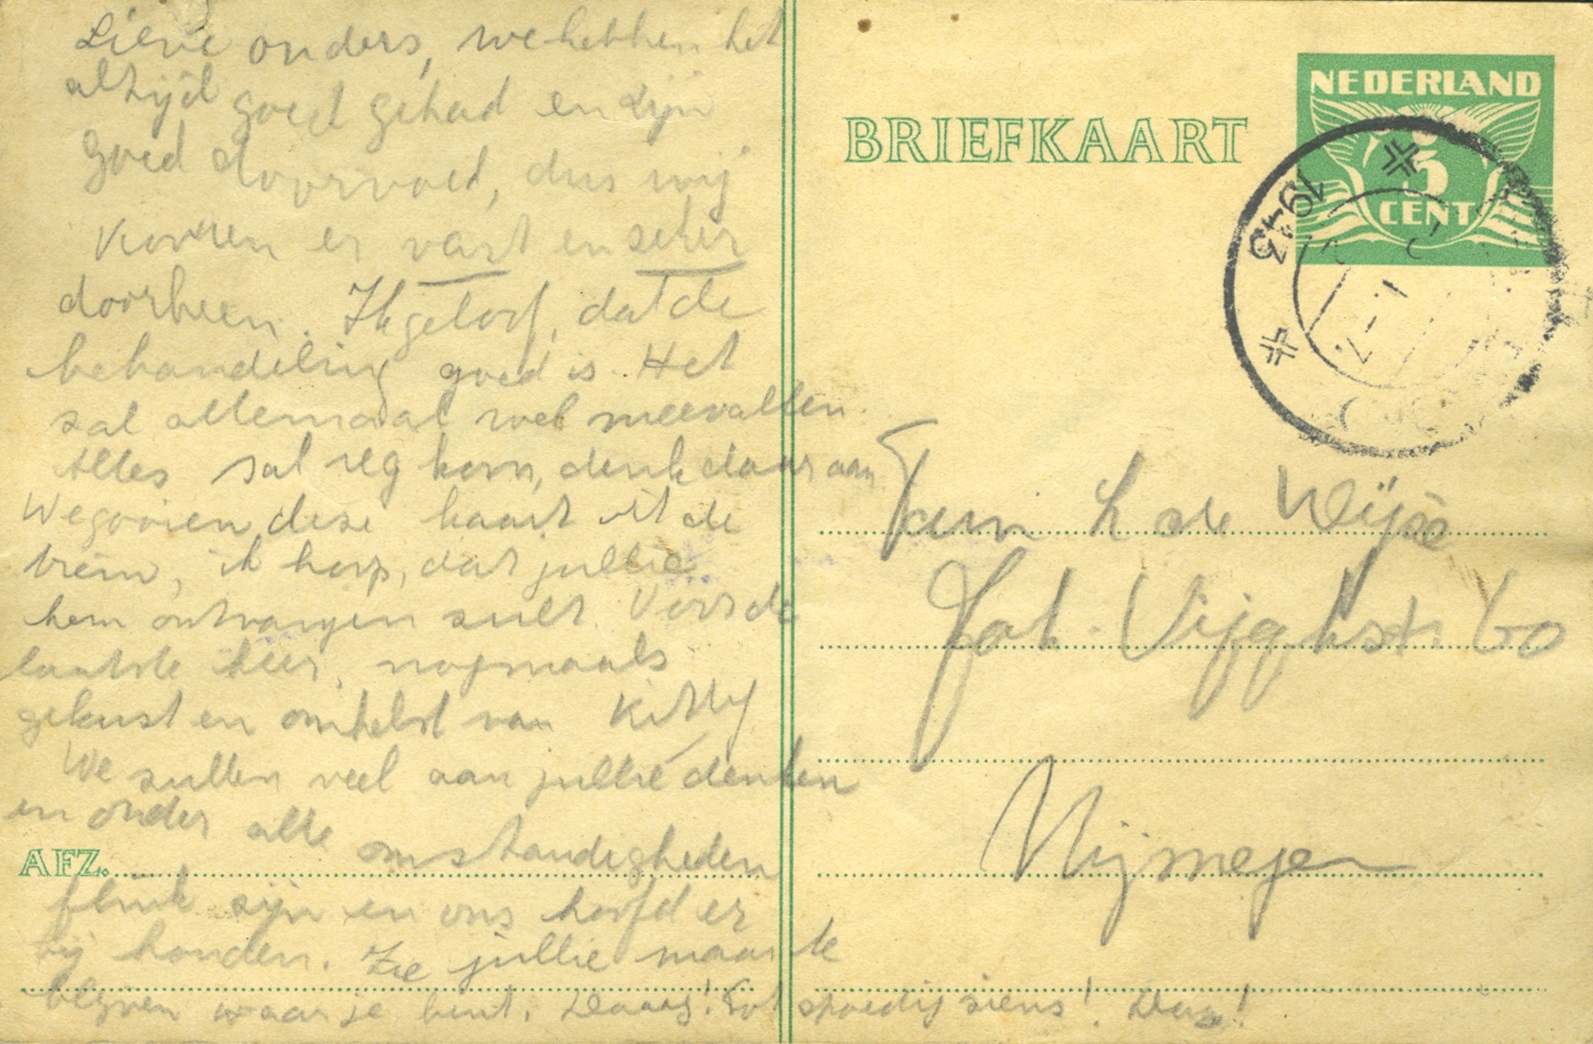 Lieve onders, we hebben het
altijd goed gehad en zijn
goed doorvoed, dus wij
komen er vast en zeker
doorheen. Ik geloof, dat de
behandeling goed is. Het
sal allemaal wel meevallen.
Alles sal reg kom, denk daar aan
We gooien deze kaart uit de
trein, ik hoop, dat jullie
hem ontvangen sult. Voor de
laatste keer, nogmaals
gekust en omhelst van Kitty
We sullen veel aan jullie denken
en onder alle omstandigheden
flink zijn en ons hoofd er
bij houden. Zie jullie maar te
blijven waar je bent. Daaag! Tot spoedig siens! Dag!
AFZ.
BRIEFKAART
NEDERLAND
5
CENT
1943
Fam L de Wijze
Joh. Vijghstr 60
Nijmegen